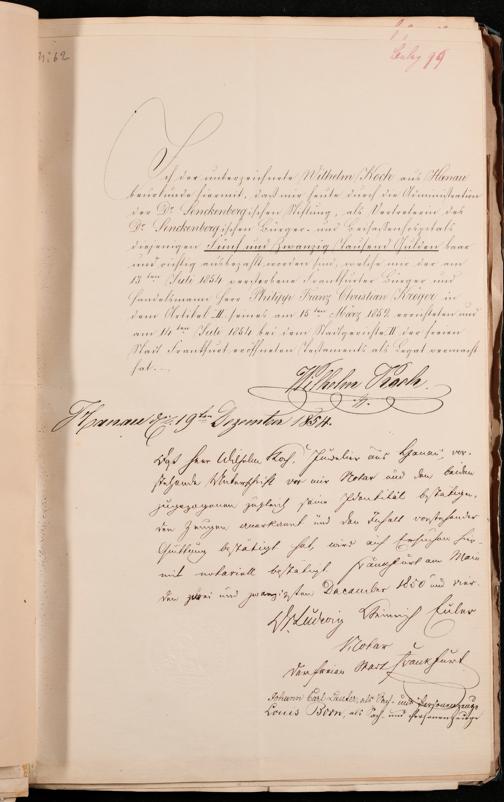 N: 62
Beilg 99
Ich der unterzeichnete Wilhelm Koch aus Hanau
beurkunde hiermit, daß mir heute durch die Administration
der Dr. Senckenbergischen Stiftung, als Vertreterin des
Dr. Senckenbergischen Bürger- und Beisassenhospitals
diejenigen Fünf und Zwanzig Tausend Gulden baar
und richtig ausbezahlt worden sind, welche mir der am
13ten Juli 1854 verstorbene Frankfurter Bürger und
Handelsmann Herr Philipp Franz Christian Kreger in
dem Artikel II. seines am 15ten März 1852 errichteten und
am 14ten Juli 1854 bei dem Stadtgerichte II der freien
Stadt Frankfurt eröffneten Testaments als Legat vermacht
hat.
Wilhelm Koch.
Hanau 19ten Dezember 1854.
Daß Herr Wilhelm Koch, Juwelier aus Hanau, vor-
stehende Unterschrift vor mir Notar und den beiden
zugezogenen zugleich seine Identität bestätigen-
den Zeugen anerkannt und den Inhalt vorstehender
Quittung bestätigt hat, wird auf Ersuchen hier-
mit notariell bestätigt. Frankfurt am Main
den zwei und zwanzigsten December 1850 und vier.
Dr. Ludwig Heinrich Euler
Notar
der freien Stadt Frankfurt
Johann Carl Lauter, als Sach- und Personenzeuge
Louis Boon, als Sach- und Personenzeuge